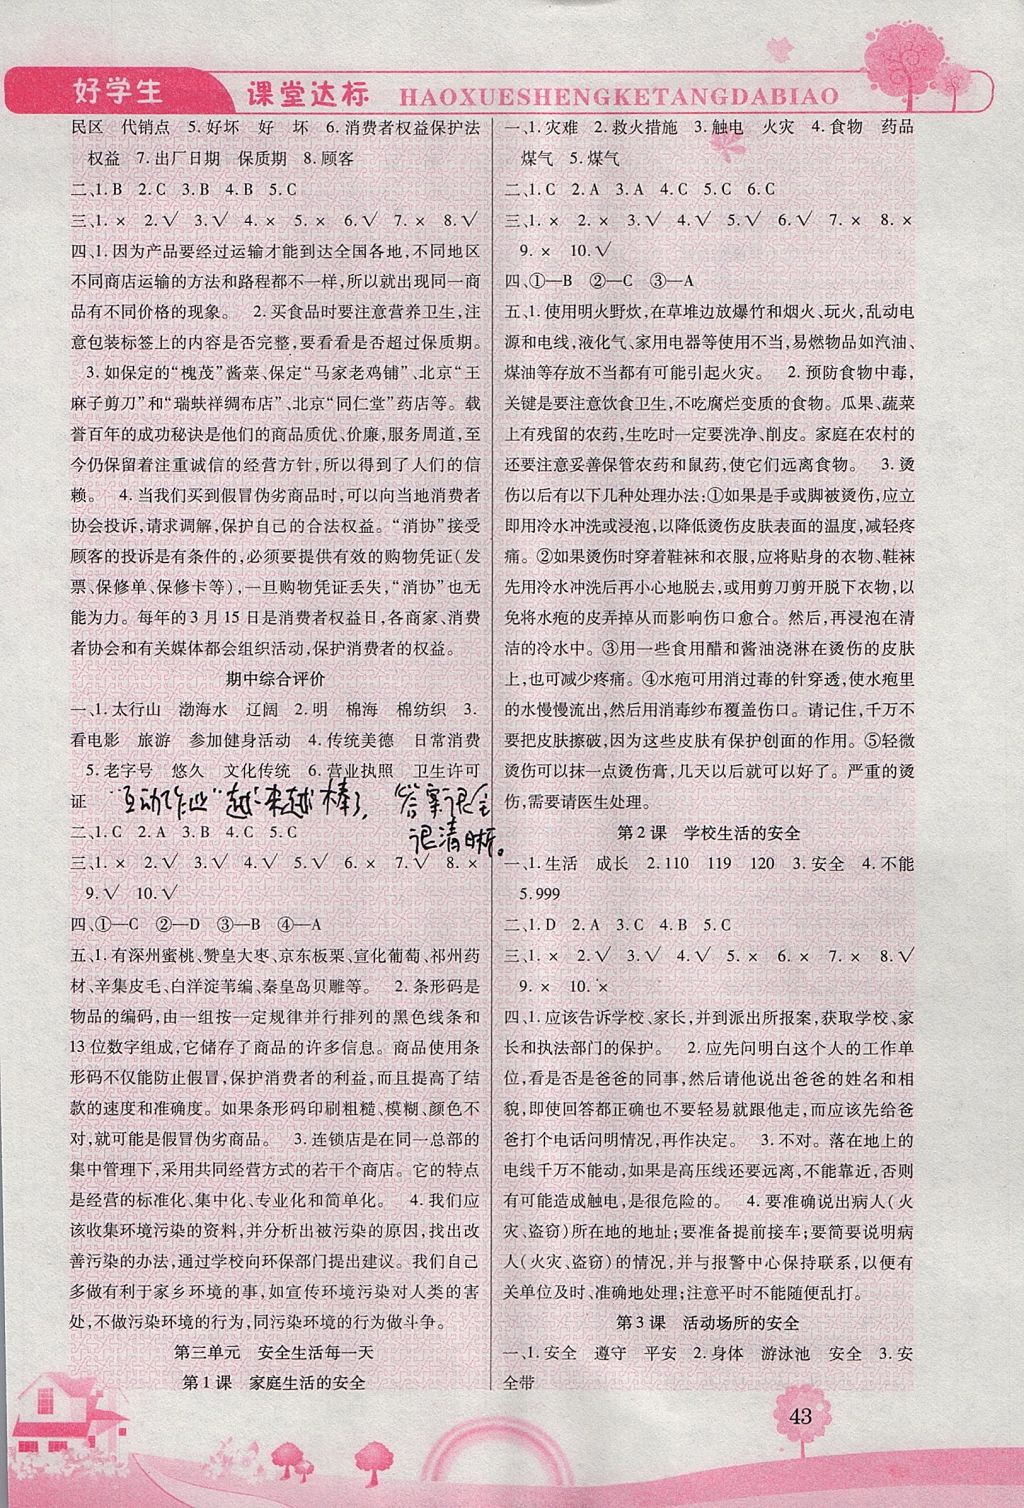 好学生 课堂达标 HAOXUESHENGKETANGDABIAO
民区 代销点 5.好坏 好 坏 6.消费者权益保护法
权益 7.出厂日期 保质期 8.顾客
二、1.B 2.C 3.B 4.B 5.C
三、1.× 2.√ 3.√ 4.× 5.× 6.√ 7.× 8.√
四、1.因为产品要经过运输才能到达全国各地,不同地区
不同商店运输的方法和路程都不一样,所以就出现同一商
品有不同价格的现象。 2.买食品时要注意营养卫生,注
意包装标签上的内容是否完整,要看看是否超过保质期。
3.如保定的“槐茂”酱菜、保定“马家老鸡铺”、北京“王
麻子剪刀”和“瑞蚨祥绸布店”、北京“同仁堂”药店等。载
誉百年的成功秘诀是他们的商品质优、价廉,服务周道,至
今仍保留着注重诚信的经营方针,所以得到了人们的信
赖。 4.当我们买到假冒伪劣商品时,可以向当地消费者
协会投诉,请求调解,保护自己的合法权益。“消协”接受
顾客的投诉是有条件的,必须要提供有效的购物凭证(发
票、保修单、保修卡等),一旦购物凭证丢失,“消协”也无
能为力。每年的3月15日是消费者权益日,各商家、消费
者协会和有关媒体都会组织活动,保护消费者的权益。
期中综合评价
一、1.太行山 渤海水 辽阔 2.明 棉海 棉纺织 3.
看电影 旅游 参加健身活动 4.传统美德 日常消费
5.老字号 悠久 文化传统 6.营业执照 卫生许可
证
“互动作业”越来越棒了,答案很全
很清晰。
二、1.C 2.A 3.B 4.C 5.C
三、1.× 2.√ 3.√ 4.× 5.× 6.× 7.√ 8.×
9.√ 10.√
四、①—C ②—D ③—B ④—A
五、1.有深州蜜桃、赞皇大枣、京东板栗、宣化葡萄、祁州药
材、辛集皮毛、白洋淀苇编、秦皇岛贝雕等。 2.条形码是
物品的编码,由一组按一定规律并行排列的黑色线条和
13位数字组成,它储存了商品的许多信息。商品使用条
形码不仅能防止假冒,保护消费者的利益,而且提高了结
款的速度和准确度。如果条形码印刷粗糙、模糊、颜色不
对,就可能是假冒伪劣商品。 3.连锁店是在同一总部的
集中管理下,采用共同经营方式的若干个商店。它的特点
是经营的标准化、集中化、专业化和简单化。 4.我们应
该收集环境污染的资料,并分析出被污染的原因,找出改
善污染的办法,通过学校向环保部门提出建议。我们自己
多做有利于家乡环境的事,如宣传环境污染对人类的害
处,不做污染环境的行为,同污染环境的行为做斗争。
第三单元 安全生活每一天
第1课 家庭生活的安全
一、1.灾难 2.救火措施 3.触电 火灾 4.食物 药品
煤气 5.煤气
二、1.C 2.A 3.A 4.C 5.C 6.C
三、1.× 2.√ 3.× 4.√ 5.√ 6.√ 7.× 8.×
9.× 10.√
四、①—B ②—C ③—A
五、1.使用明火野炊,在草堆边放爆竹和烟火、玩火,乱动电
源和电线,液化气、家用电器等使用不当,易燃物品如汽油、
煤油等存放不当都有可能引起火灾。 2.预防食物中毒,
关键是要注意饮食卫生,不吃腐烂变质的食物。瓜果、蔬菜
上有残留的农药,生吃时一定要洗净、削皮。家庭在农村的
还要注意妥善保管农药和鼠药,使它们远离食物。 3.烫
伤以后有以下几种处理办法:①如果是手或脚被烫伤,应立
即用冷水冲洗或浸泡,以降低烫伤皮肤表面的温度,减轻疼
痛。②如果烫伤时穿着鞋袜和衣服,应将贴身的衣物、鞋袜
先用冷水冲洗后再小心地脱去,或用剪刀剪开脱下衣物,以
免将水疱的皮弄掉从而影响伤口愈合。然后,再浸泡在清
洁的冷水中。③用一些食用醋和酱油浇淋在烫伤的皮肤
上,也可减少疼痛。④水疱可用消过毒的针穿透,使水疱里
的水慢慢流出,然后,用消毒纱布覆盖伤口。请记住,千万不
要把皮肤撕去,因为这些皮肤有保护创面的作用。⑤轻微
烫伤可以抹一点烫伤膏,几天以后就可以好了。严重的烫
伤,需要请医生处理。
第2课 学校生活的安全
一、1.生活 成长 2.110 119 120 3.安全 4.不能
5.999
二、1.D 2.A 3.C 4.B 5.C
三、1.× 2.√ 3.√ 4.× 5.× 6.√ 7.√ 8.√
9.× 10.×
四、1.应该告诉学校、家长,并到派出所报案,获取学校、家
长和执法部门的保护。 2.应先问明白这个人的工作单
位,看是否是爸爸的同事,然后请他说出爸爸的姓名和相
貌,即使回答都正确也不要轻易就跟他走,而应该先给爸
爸打个电话问明情况,再作决定。 3.不对。落在地上的
电线千万不能动,如果是高压线还要远离,不能靠近,否则
有可能造成触电,是很危险的。 4.要准确说出病人(火
灾、盗窃)所在地的地址;要准备提前接车;要简要说明病
人(火灾、盗窃)的情况,并与报警中心保持联系,以便有
关单位及时、准确地处理;注意平时不能随便乱打。
第3课 活动场所的安全
一、1.安全 遵守 平安 2.身体 游泳池 安全 3.安
全带
43